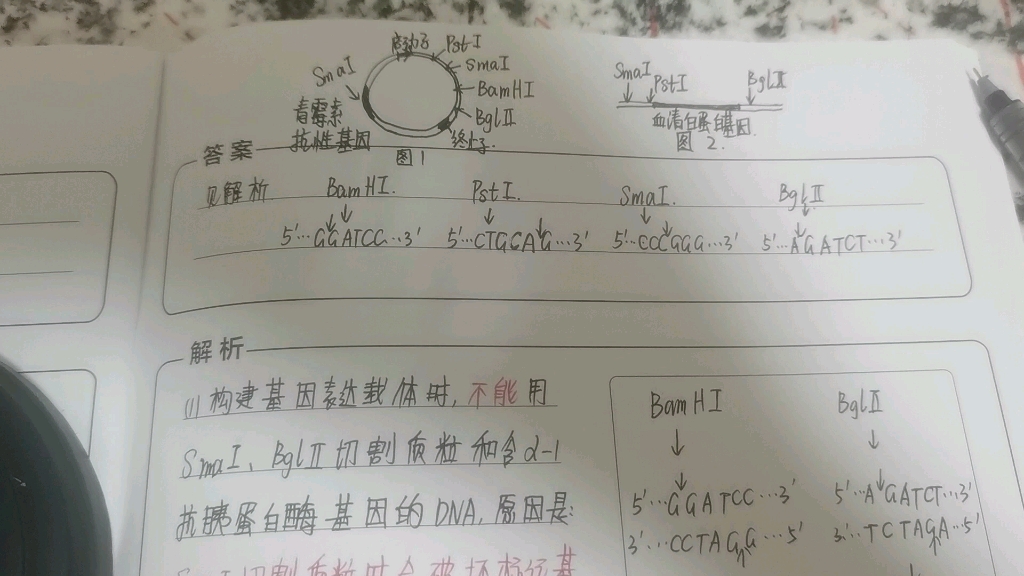 启动子 PstI
SmaI
SmaI
BamHI
BglII
青霉素
抗性基因
终止子
图1
SmaI PstI BglII
血清白蛋白基因
图2.
答案
见解析 BamHI. PstI. SmaI. BglII
5'…GGATCC…3' 5'…CTGCAG…3' 5'…CCCGGG…3' 5'…AGATCT…3'
解析
(1)构建基因表达载体时,不能用
SmaI、BglII切割质粒和含α-1
抗胰蛋白酶基因的DNA,原因是:
SmaI切割质粒时会破坏标记基
BamHI BglII
5'…GGATCC…3' 5'…AGATCT…3'
3'…CCTAGG…5' 3'…TCTAGA…5'